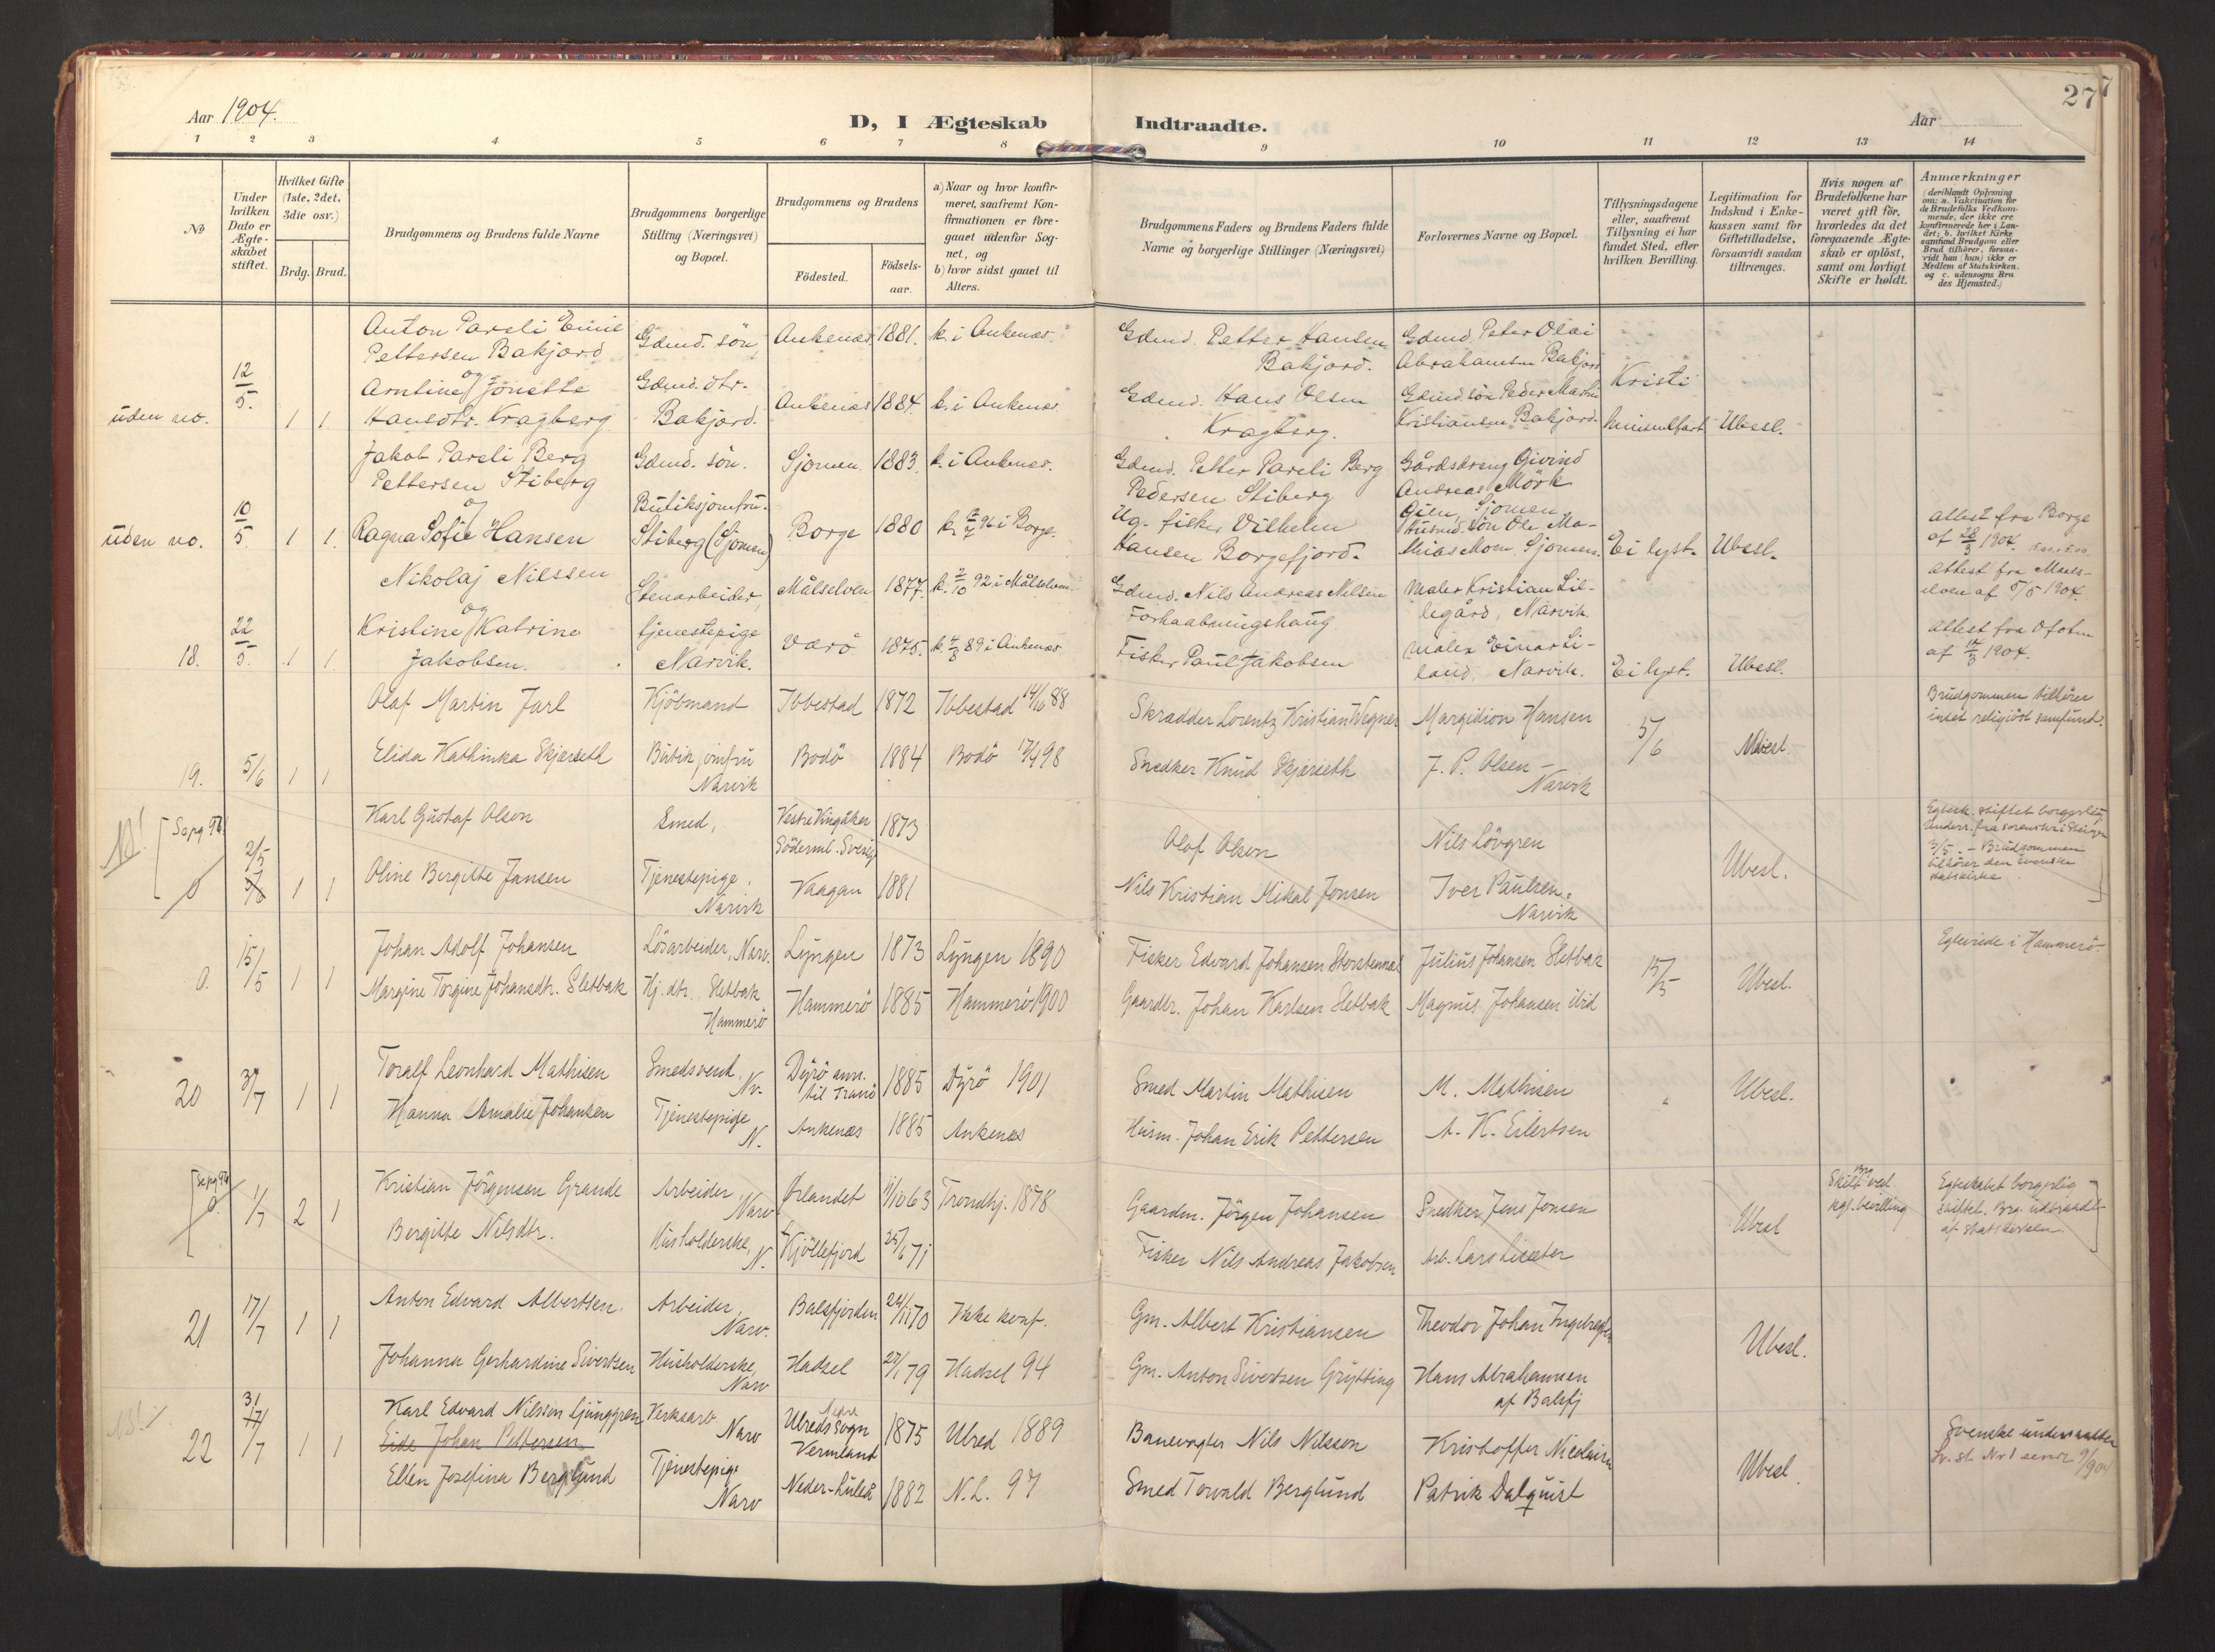 Aar 1904.
D, I Ægteskab
Indtraadte.
Aar
27
7
1 2 3 4 5 6 7 8 9 10 11 12 13 14
No
Under hvilken Dato er Ægteskabet stiftet.
Hvilket Gifte (1ste, 2det, 3die osv.)
Brdg. Brud.
Brudgommens og Brudens fulde Navne
Brudgommens borgerlige Stilling (Næringsvei) og Bopæl.
Brudgommens og Brudens
Födested.
Födselsaar.
a) Naar og hvor konfirmeret, saafremt Konfirmationen er foregaaet udenfor Sognet, og
b) hvor sidst gaaet til Alters.
Brudgommens Faders og Brudens Faders fulde Navne og borgerlige Stillinger (Næringsvei)
Forlovernes Navne og Bopæl.
Tillysningsdagene eller, saafremt Tillysning ei har fundet Sted, efter hvilken Bevilling.
Legitimation for Indskud i Enkekassen samt for Giftetilladelse, forsaavidt saadan tiltrænges.
Hvis nogen af Brudefolkene har været gift för, hvorledes da det foregaaende Ægteskab er oplöst, samt om lovligt Skifte er holdt.
Anmærkninger
(deriblandt Oplysning om: a. Vakcination för de Brudefolks Vedkommende, der ikke ere konfirmerede her i Landet; b. hvilket Kirkesamfund Brudgom eller Brud tilhörer, forsaavidt han (hun) ikke er Medlem af Statskirken, og c. udensogns Brudes Hjemsted.)
Anton Pareli Emil Gdmd. sön Ankenæs 1881. k. i Ankenæs. Gdmd. Petter Hansen Gdmd. Peter Olai
Pettersen Bakjord Bakjord. Abrahamsen Bakjord
12/5. og
Arntine Jonette Gdmd. dtr. Ankenæs 1884. k. i Ankenæs. Gdmd. Hans Olsen Gdmd. sön Peder Martin Kristi
uden no. 1 1 Hansdtr. Kragberg Bakjord. Kragberg. Kristiansen Bakjord. himmelfart Ubesl.
Jakob Pareli Berg Gdmd. sön. Sjomen 1883. k. i Ankenæs. Gdmd. Petter Pareli Berg Gårdsdreng Øivind
Pettersen Stiberg Pedersen Stiberg Andreas Mörk
og Butiksjomfru. Ug. fisker Vilhelm Öien, Sjomen,
uden no. 10/5. 1 1. Ragna Sofie Hansen Stiberg (Sjomen) Borge 1880 96 i Borge. Hansen Borgefjord. Husmd. sön Ole Mathias Moen, Sjomen. Ei lyst. Ubesl. attest fra Borge
af 28/3 1904.
Nikolaj Nilssen Stenarbeider, Målselven 1877. k. 2/10 92 i Målselven. Gdmd. Nils Andreas Nilsen Maler Kristian Lillegård, Narvik. attest fra Maalselven af 5/5 1904.
og Forhaabningshaug
18. 22/5. 1 1 Kristine Katrine tjenestepige Værö 1875. k. 4/8 89 i Ankenæs. Fisker Paul Jakobsen Maler Einar Liland, Narvik. Ei lyst. Ubesl. attest fra Ofoten
Jakobsen. Narvik. af 14/3 1904.
Olaf Martin Jarl Kjöbmand Ibbestad 1872 Ibbestad 88 Skrædder Lorentz Kristian Wegner Margidion Hansen 5/6 Brudgommen tilhörer
intet religiöst samfund.
19. 5/6 1 1 Elida Kathinka Skjærseth Butikjomfru Bodö 1884 Bodö 98 Snedker Knud Skjærseth J. P. Olsen – Ubesl.
Narvik Narvik
NB! [Se pg 96 Karl Gustaf Olson Smed, Vestre Vingåker 1873 Olof Olson Nils Lövgren Egtesk. stiftet borgerlig
Söderml. Sverige
0 2/5 1 1 Oline Bergitte Jansen Tjenestepige. Vaagan 1881 Nils Kristian Mikal Jonsen Iver Paulsen. Ubesl. – Brudgommen tilhörer den svenske statskirke.
Narvik Narvik
Johan Adolf Johansen Lösarbeider, Narv. Lyngen 1873 Lyngen 1890 Fisker Edvard Johansen Julius Johansen Sletbak Egteviede i Hammerö
0. 15/5 1 1 Margine Torgine Johansdtr. Sletbak Hj. dtr. Sletbak Hammerö 1885 Hammerö 1900 Gaardbr. Johan Karlsen Sletbak Magnus Johansen ibid 15/5 Ubesl.
Hammerö
Toralf Leonhard Mathisen Smedsvend, Nv. Dyrö ann. til Tranö 1885 Dyrö 1901 Smed Martin Mathisen M. Mathisen " Ubesl.
20 3/7 1 1 Hanna Amalie Johansen Tjenestepige N. Ankenæs 1885 Ankenæs Husm. Johan Erik Pettersen A. K. Eilertsen
[Se pg 96 Kristian Jörgensen Grande Arbeider, Narv Ørlandet 11/10 63 Trondhj. 1878 Gaardm. Jörgen Johansen Snedker Jens Jonsen Skilt ved kgl. bevilling Egteskabet borgerlig stiftet. Brg. udtraadt af statskirken.
0. 1/7 2 1 Bergitte Nilsdtr. Husholderske, N. Kjöllefjord 25/6 71 Fisker Nils Andreas Jakobsen Arb. Lars Ubesl
Anton Edvard Albertsen. Arbeider, Narv. Balsfjorden 24/11 70 Ikke konf. Gm. Albert Kristiansen Theodor Johan Ingebregtsen
21 17/7 1 1 Johanna Gerhardine Sivertsen Husholderske, Narv Hadsel 27/1 79 Hadsel 94 Gm. Anton Sivertsen Grytting Hans Abrahamsen Ubesl.
af Balsfj
NB! 31/7 Karl Edvard Nilsson Ljunggren Verksarb Narv Ulreds Sogn Vermland 1875 Ulred 1889 Banevagter Nils Nilsson Kristoffer Nicolaisen Svenske undersaatter
22 1 1 Eide Johan Pettersen
Ellen Josefina Berglund Tjenestepige Narv Neder-Luleå 1882 N. L. 97 Smed Torvald Berglund Patrik Dalquist Ubesl.